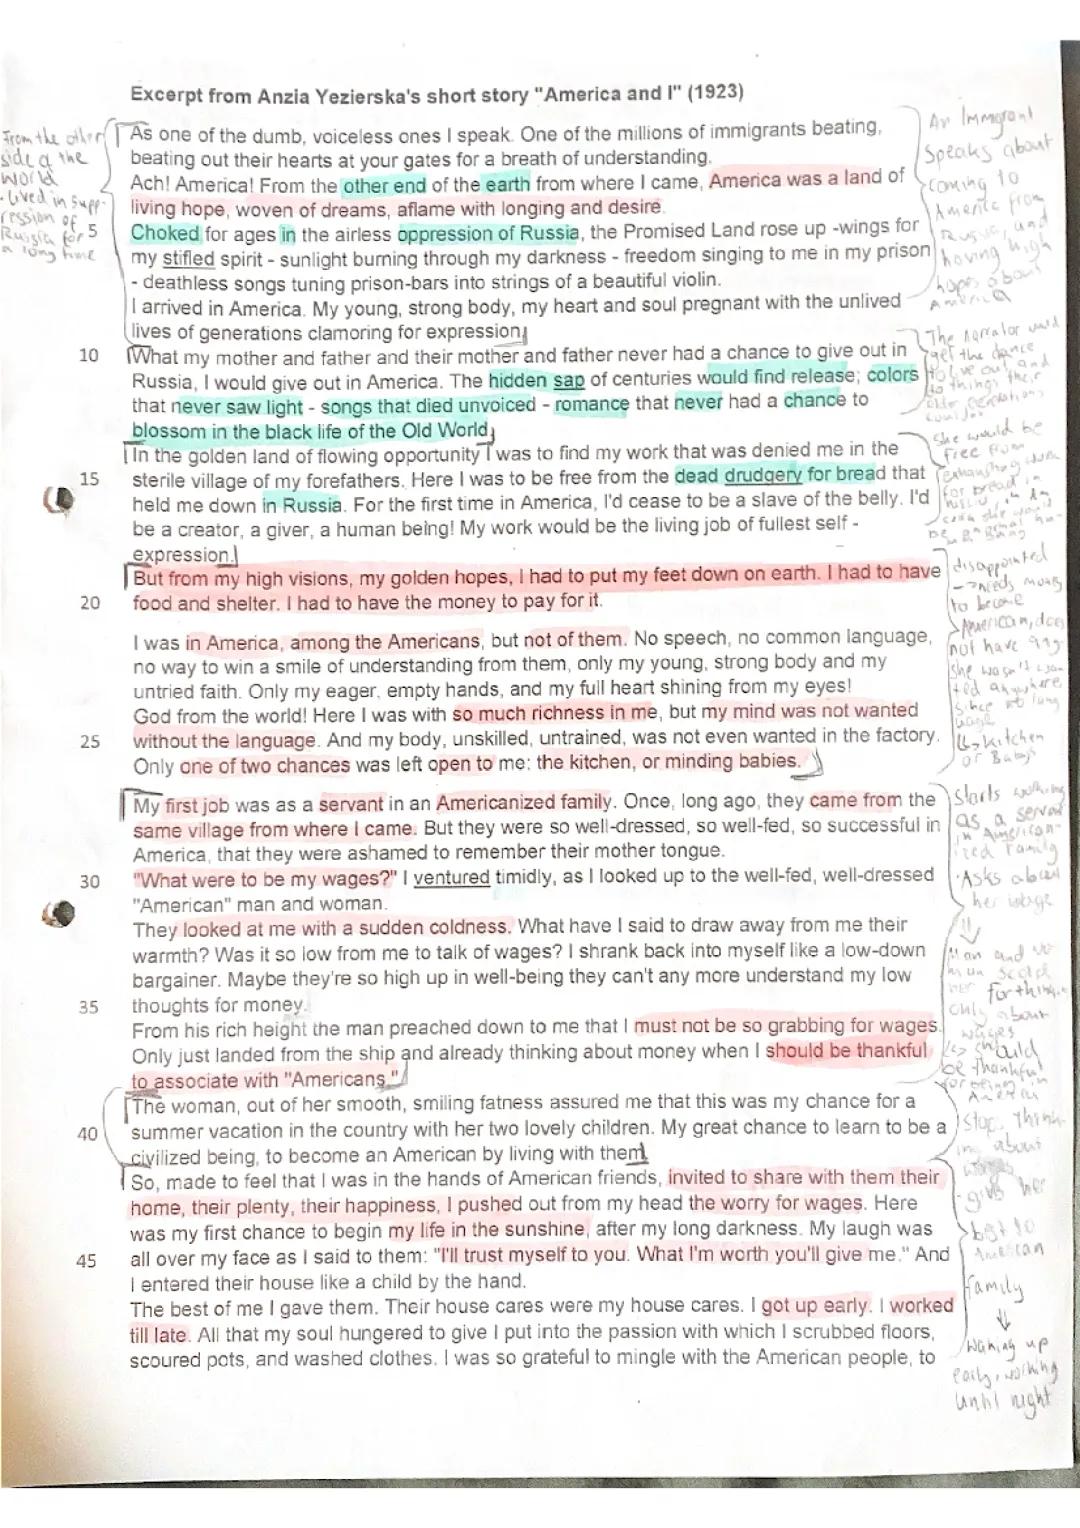 Excerpt from Anzia Yezierska's short story "America and I" (1923)
As one of the dumb, voiceless ones I speak. One of the millions of immigrants beating,
beating out their hearts at your gates for a breath of understanding.
Ach! America! From the other end of the earth from where I came, America was a land of
living hope, woven of dreams, aflame with longing and desire.
5 Choked for ages in the airless oppression of Russia, the Promised Land rose up -wings for
my stifled spirit - sunlight burning through my darkness - freedom singing to me in my prison
- deathless songs tuning prison-bars into strings of a beautiful violin.
I arrived in America. My young, strong body, my heart and soul pregnant with the unlived
lives of generations clamoring for expression.
10 What my mother and father and their mother and father never had a chance to give out in
Russia, I would give out in America. The hidden sap of centuries would find release; colors
that never saw light - songs that died unvoiced - romance that never had a chance to
blossom in the black life of the Old World.
In the golden land of flowing opportunity I was to find my work that was denied me in the
15 sterile village of my forefathers. Here I was to be free from the dead drudgery for bread that
held me down in Russia. For the first time in America, I'd cease to be a slave of the belly. I'd
be a creator, a giver, a human being! My work would be the living job of fullest self -
expression.
But from my high visions, my golden hopes, I had to put my feet down on earth. I had to have
20 food and shelter. I had to have the money to pay for it.
I was in America, among the Americans, but not of them. No speech, no common language,
no way to win a smile of understanding from them, only my young, strong body and my
untried faith. Only my eager, empty hands, and my full heart shining from my eyes!
God from the world! Here I was with so much richness in me, but my mind was not wanted
25 without the language. And my body, unskilled, untrained, was not even wanted in the factory.
Only one of two chances was left open to me: the kitchen, or minding babies.
My first job was as a servant in an Americanized family. Once, long ago, they came from the
same village from where I came. But they were so well-dressed, so well-fed, so successful in
America, that they were ashamed to remember their mother tongue.
30 "What were to be my wages?" I ventured timidly, as I looked up to the well-fed, well-dressed
"American" man and woman.
They looked at me with a sudden coldness. What have I said to draw away from me their
warmth? Was it so low from me to talk of wages? I shrank back into myself like a low-down
bargainer. Maybe they're so high up in well-being they can't any more understand my low
35 thoughts for money.
From his rich height the man preached down to me that I must not be so grabbing for wages.
Only just landed from the ship and already thinking about money when I should be thankful
to associate with "Americans."
The woman, out of her smooth, smiling fatness assured me that this was my chance for a
40 summer vacation in the country with her two lovely children. My great chance to learn to be a
civilized being, to become an American by living with them.
So, made to feel that I was in the hands of American friends, invited to share with them their
home, their plenty, their happiness, I pushed out from my head the worry for wages. Here
was my first chance to begin my life in the sunshine, after my long darkness. My laugh was
45 all over my face as I said to them: "I'll trust myself to you. What I'm worth you'll give me." And
I entered their house like a child by the hand.
The best of me I gave them. Their house cares were my house cares. I got up early. I worked
till late. All that my soul hungered to give I put into the passion with which I scrubbed floors,
scoured pots, and washed clothes. I was so grateful to mingle with the American people, to
From the other
side of the
world
lived in supp-
ression of
Russia for
a long time
An Immigrant
speaks about
coming to
America from
Russia, and
having high
hopes about
America
The narrator would
get the chance
to live out and
do things their
She would be
free from
exhausting work
for bread in
disappointed
-> needs money
to become
American, does
not have any
she wasn't wan
ted anywhere
since no lang
uage
↳ kitchen
or Babys
Starts working
as a servant
in American-
ized family
Asks about
her wage
Man and wo
man scold
her for thin
only about
wages
↳ should
be thankful
for being in
America
Stop think
ing about
wages
- gives her
best to
American
family
waking up
early, working
until night